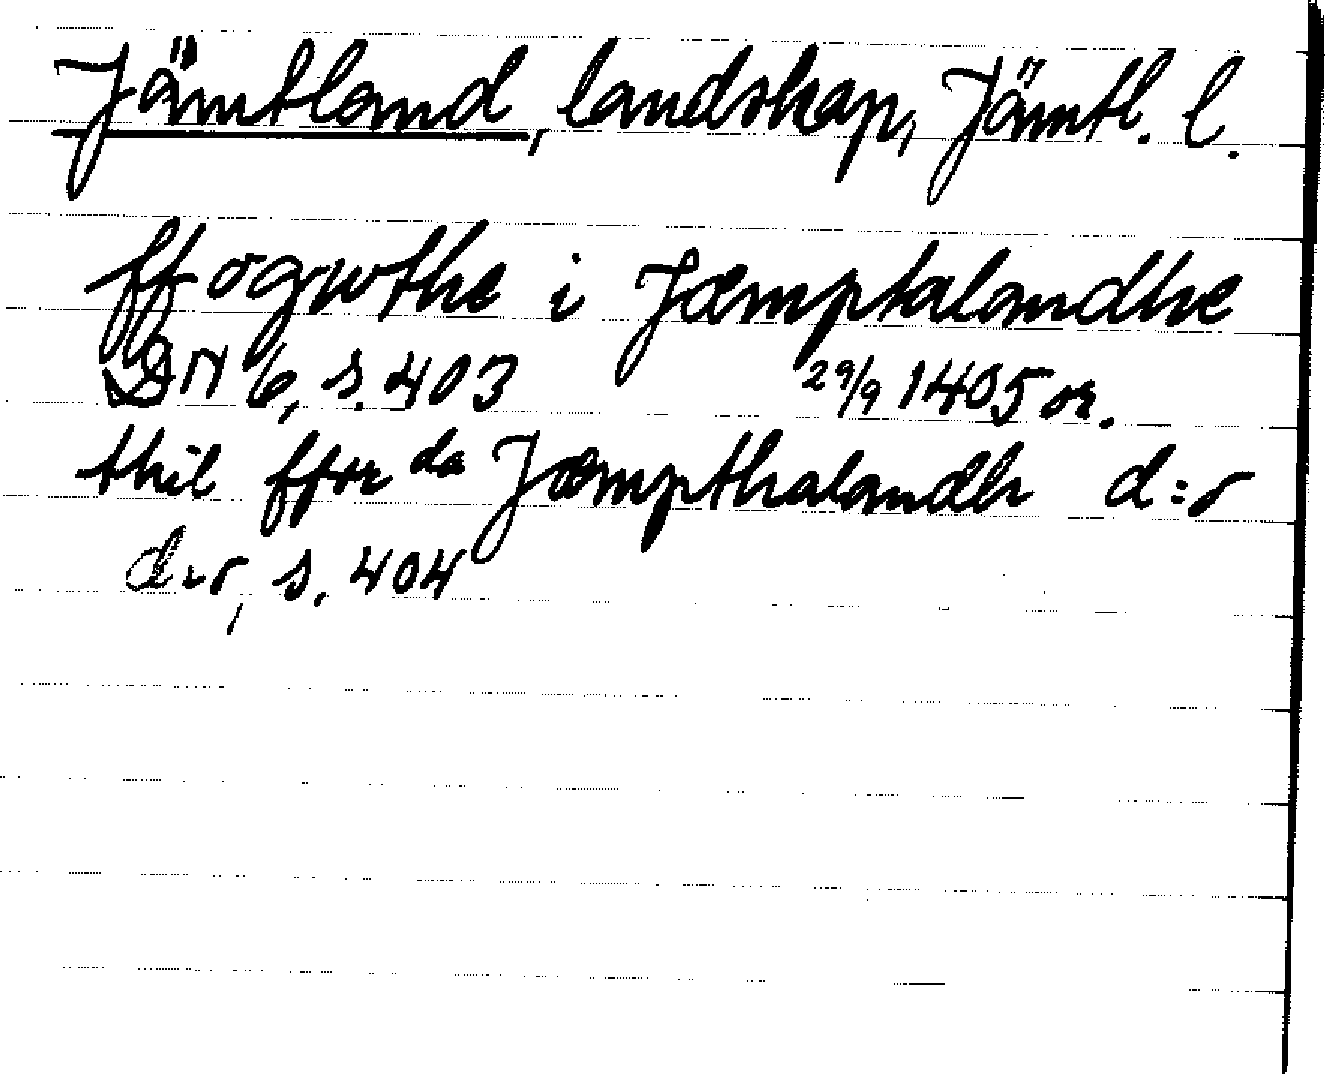 Jämtland, landskap, Jämtl. l.
ffogwthe i Jæmptalandhe
DN 6, s. 403 29/9 1405 or.
thil ffor da Jæmpthalandh d:o
d:o, s. 404